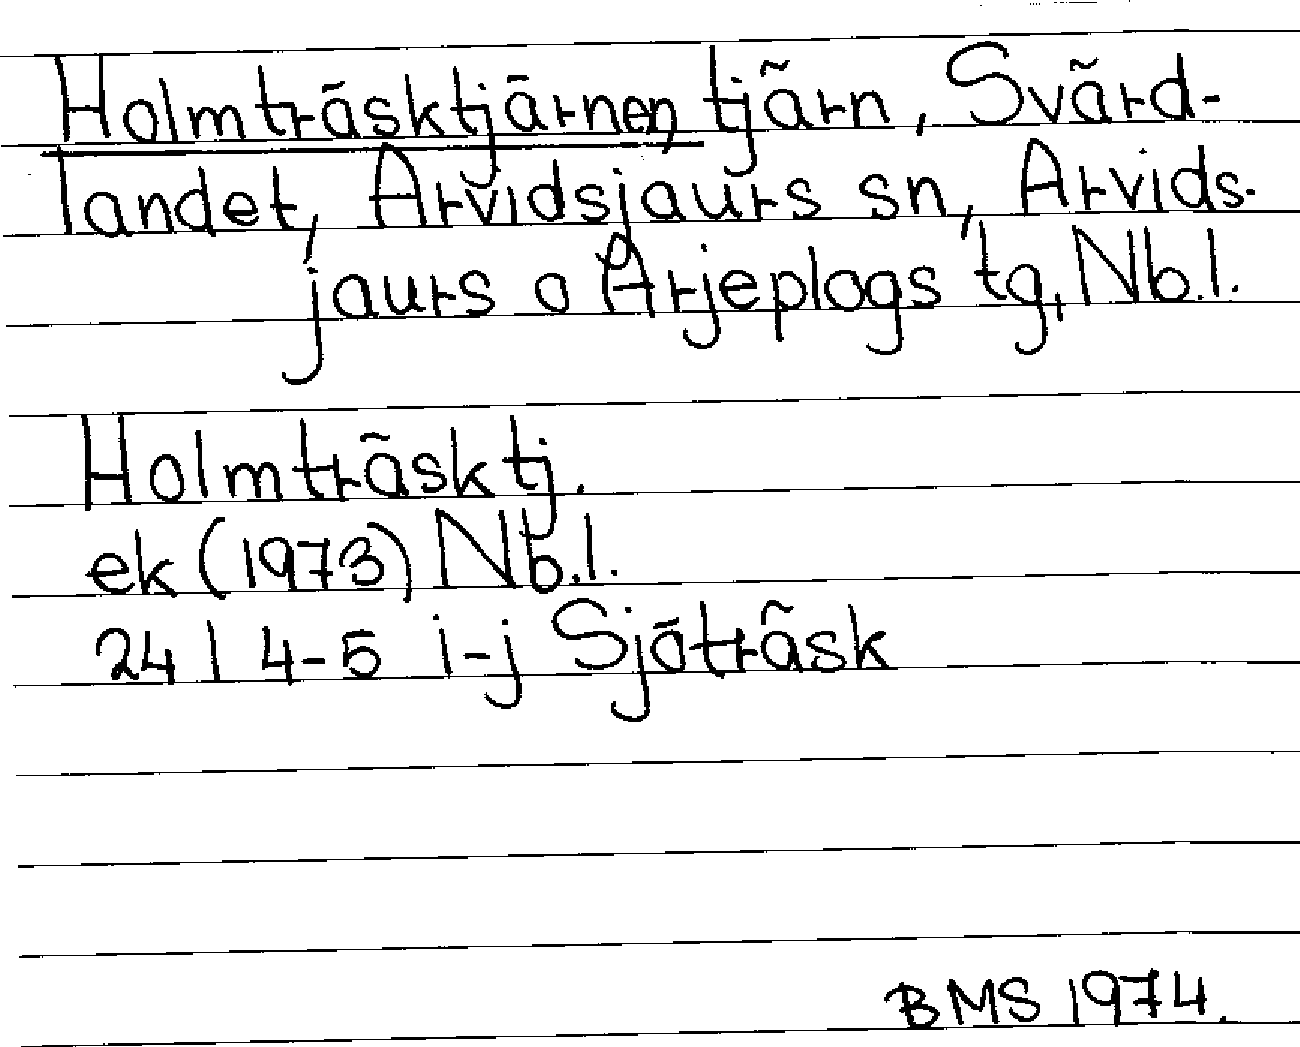 Holmträsktjärnen, tjärn, Svärd-
landet, Arvidsjaurs sn, Arvids-
jaurs o Arjeplogs tg, Nb.l.
Holmträsktj.
ek (1973) Nb.l.
24 I 4-5 i-j Sjöträsk
BMS 1974.